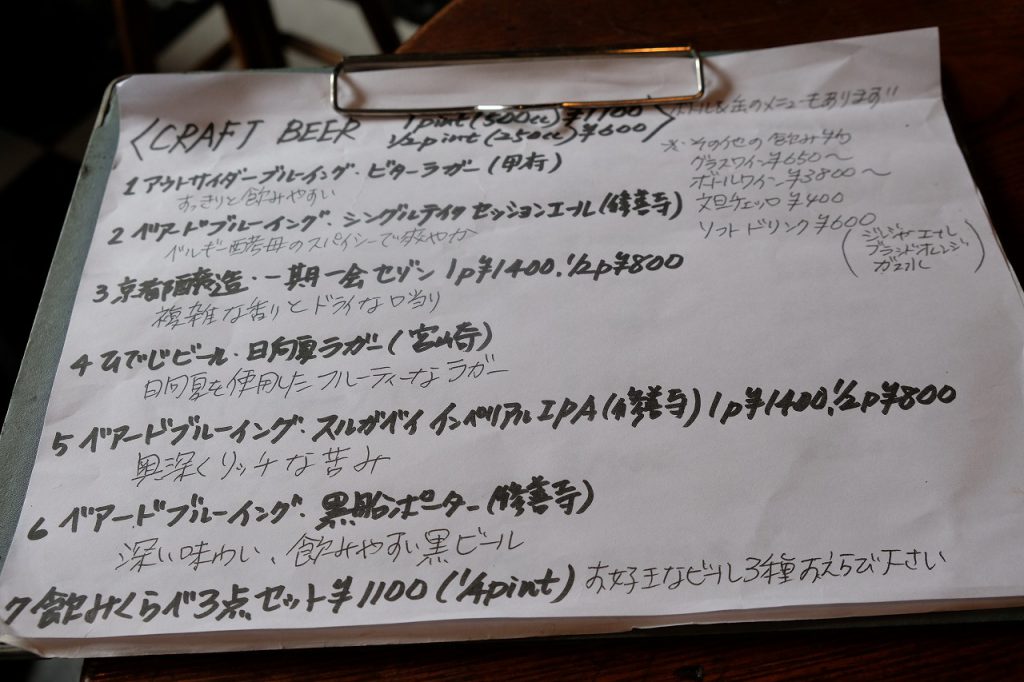 〈CRAFT BEER 1pint(500cc)¥1100
1/2pint(250cc)¥600〉
ボトル&缶のメニューもあります!!
※その他の飲み物
グラスワイン¥650〜
ボトルワイン¥3800〜
文旦チェッロ¥400
ソフトドリンク¥600
(ジンジャーエール
ブラッドオレンジ
ガス水)
1 アウトサイダーブルーイング・ビターラガー(甲府)
すっきりと飲みやすい
2 ベアードブルーイング・シングルテイクセッションエール(修善寺)
ベルギー酵母のスパイシーで爽やか
3 京都醸造・一期一会セゾン 1p¥1400,1/2p¥800
複雑な香りとドライな口当り
4 ひでじビール・日向夏ラガー(宮崎)
日向夏を使用したフルーティーなラガー
5 ベアードブルーイング・スルガベイインペリアルIPA(修善寺)1p¥1400,1/2p¥800
奥深くリッチな苦み
6 ベアードブルーイング・黒船ポーター(修善寺)
深い味わい、飲みやすい黒ビール
7 飲みくらべ3点セット¥1100(1/4pint)お好きなビール3種おえらび下さい